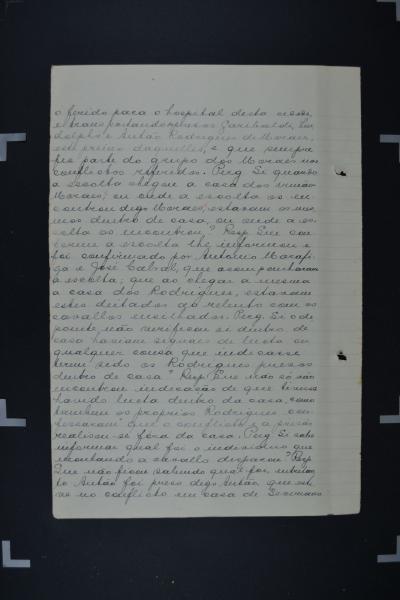 o ferido para o hospital desta cidade,
e transportando presos Garibaldi, Lin
dolpho e Antão Rodrigues de Moraes,
este primo daquelles, e que sempre
fez parte do grupo dos Moraes nos
conflictos referidos. Perg. Si quando
a escolta chegou a casa dos irmãos
Moraes, ou onde a escolta os en
controu digo Moraes, estavam os mes
mos dentro de casa, ou onde a es
colta os encontrou? Resp. Que con
forme a escolta lhe informou e
foi confirmado por Antonio
e José Cabral, que acompanharam
a escolta; que ao chegar a mesma
a casa dos Rodrigues, estavam
estes deitados ao relento com os
cavallos encilhados. Perg. Si o de
poente não verificou si dentro de
casa haviam signaes de lucta ou
qualquer cousa que indicasse
terem sido os Rodrigues presos
dentro de casa? Resp. Que não só não
encontrou indicação de que tivesse
havido lucta dentro da casa, como
tambem os proprios Rodrigues con
fessaram que o conflicto e a prisão
realisou-se fóra da casa. Perg. Si sabe
informar qual foi o individuo que
montando a cavallo disparou? Resp.
Que não ficou sabendo qual foi,
to Antão foi preso digo Antão que este
ve no conflicto em casa de